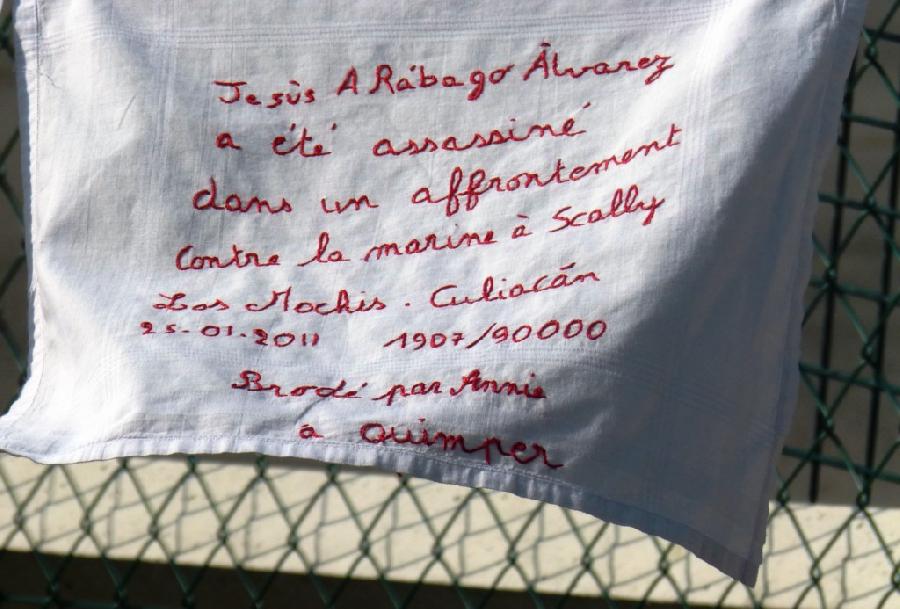 Jesùs A Rábago Álvarez
a été assassiné
dans un affrontement
Contre la marine à Scally
Los Mochis. Culiacán
25-01-2011 1907/90000
Brodé par Annie
à Quimper